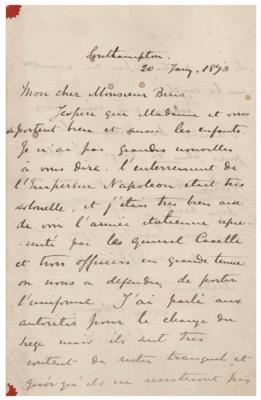 Southampton.
20 - Jany. 1873
Mon cher Monsieur
J'espere que Madame et vous
se portent bien et aussi les enfants.
Je n'ai pas grandes nouvelles
à vous dire. L'enterrement de
l'Empereur Napoleon etait tres
solonelle. et j'étais tres bien aise
de voir l'armée italienne repre-
senté par les general Caselle
et trois officiers en grande tenue
on nous a defendu de porter
l'uniforme. J'ai parlé aux
autorités pour le change du
siege mais ils sont tres
content de rester tranquil et
quoiqu'ils ne resisteront pas